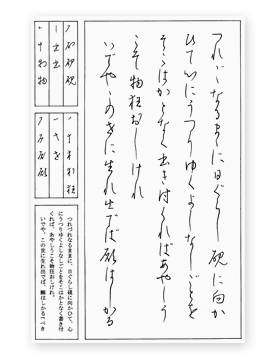 つれづれなるまゝに日ぐらし硯に向か
ひて心にうつりゆくよしなしごとを
そこはかとなく書き付くればあやしう
こそ物狂おしけれ
いでやこの世に生れ出でば願はしかる
硯
出
物
狂
願
つれづれなるままに、日ぐらし硯に向かひて、心
にうつりゆくよしなしごとをそこはかとなく書き付
くれば、あやしうこそ物狂おしけれ。
いでや、この世に生れ出でば、願はしかるべき